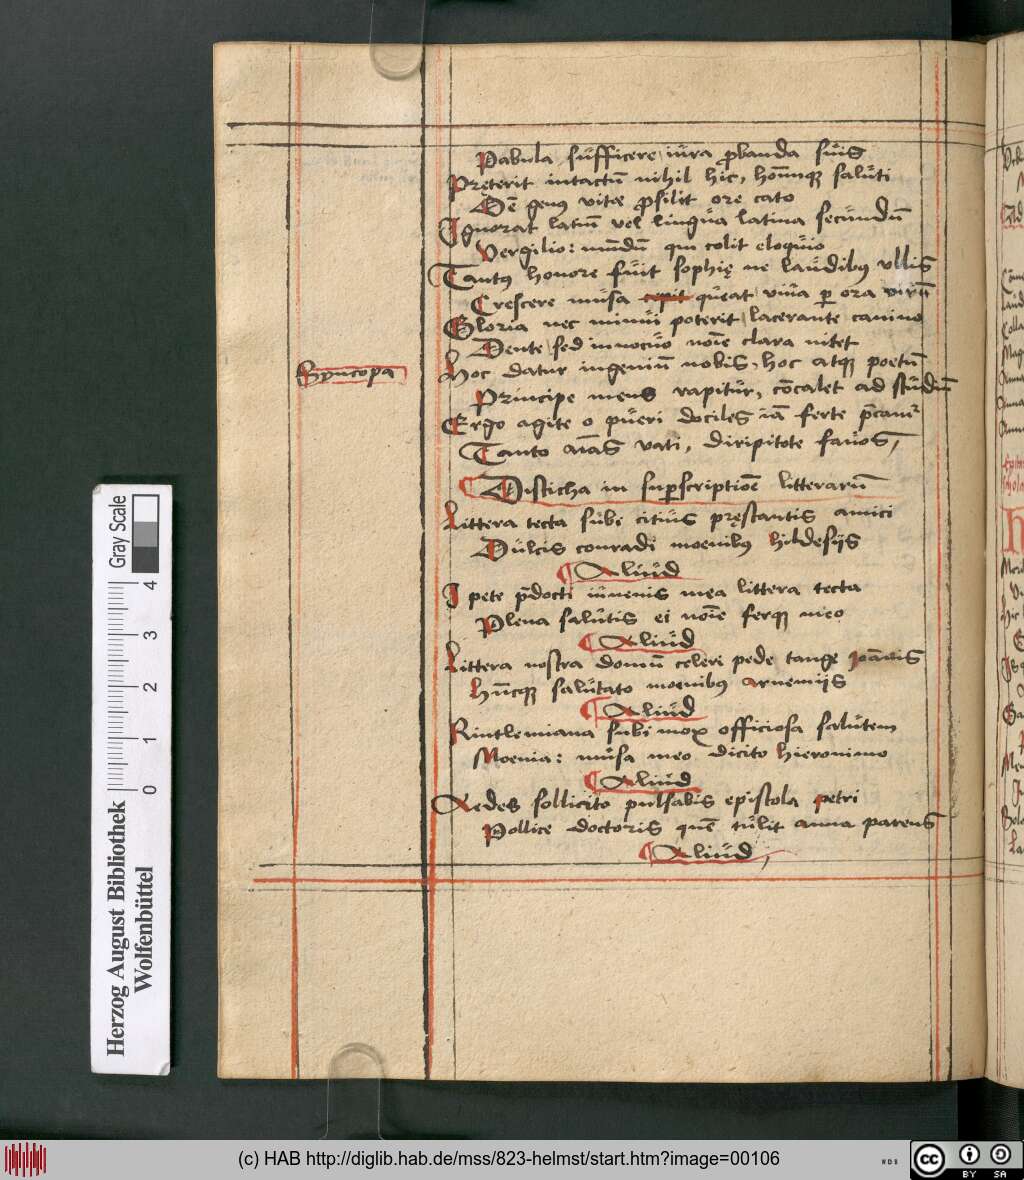 Pabula sufficere iura ꝓbanda suis
Pręterit intactū nihil hic, hoīnūqꝫ saluti
Dē genus vitae ꝓsilit ore cato
Ignorat latiū vel lingua latina secundū
Vergilio: mūdū qui colit eloquio
Tantꝰ honore fuit sophię ne laudibꝰ vllis
Crescere musa queat viua ꝑ ora virū
Gloria nec minui poterit lacerante canino
Dente sed innocuo noīe clara nitet
Syncopa
Hoc datur ingeniū nobis, hoc atqꝫ poetū
Principe mens rapitur, cōcalet ad studiū
Ergo agite o pueri dociles iā ferte p̄camr
Tanto aīas vati, diripitote fauos,
Disticha in suꝑscriptiōe litterarū
Littera tecta subi citius pręstantis amici
Dulcis conradi moenibꝰ hildesijs
Aliud
I pete p̄docti iuuenis mea littera tecta
Plena salutis ei noīe ferqꝫ meo
Aliud
Littera nostra domū celeri pede tange Joānis
Hūcqꝫ salutato moenibꝰ arnemijs
Aliud
Rintlemiana subi mox officiosa salutem
Moenia: musa meo dicito hieronimo
Aliud
Aedes sollicito pulsabis epistola petri
Pollice doctoris quē tulit anna parens
Aliud,
Gray Scale
0 1 2 3 4
Herzog August Bibliothek
Wolfenbüttel
(c) HAB http://diglib.hab.de/mss/823-helmst/start.htm?image=00106
WDB
cc
BY SA